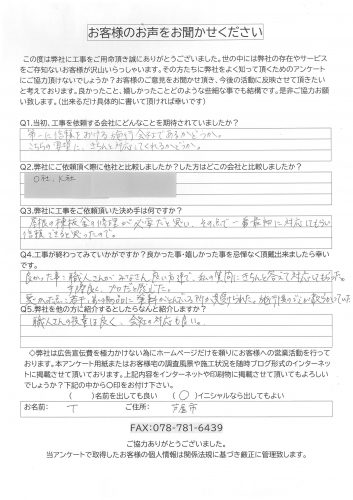 お客様のお声をお聞かせください
この度は弊社に工事をご用命頂き誠にありがとうございました。世の中には弊社の存在やサービス
をご存知ないお客様が沢山いらっしゃいます。その方たちに弊社をよく知って頂くためのアンケート
にご協力頂けないでしょうか？お客様のご意見をお聞かせ頂き、今後の活動に反映させて頂きたい
と考えております。良かったこと、嬉しかったことどのような些細な事でも結構です。是非ご協力お願
い致します。(出来るだけ具体的に書いて頂ければ幸いです)
Q1.当初、工事を依頼する会社にどんなことを期待されていましたか？
第一に信頼をおける施行会社であるかどうか。
こちらの要望に、きちんと対応してくれるかどうか。
Q2.弊社にご依頼頂く際に他社と比較しましたか？した方はどこの会社と比較しましたか？
O社、K社
Q3.弊社に工事をご依頼頂いた決め手は何ですか？
屋根の棟板金の修理が必要だと思い、その点で一番親切に対応してもらい
信頼できると思ったので。
Q4.工事が終わってみていかがですか？良かった事・嬉しかった事を忌憚なく頂戴出来ましたら幸い
です。
良かった事：職人さんがみなさん良い方達で、私の質問にきちんと答えて対応してもらった。
プロだと感じた。
Q5.弊社を他の方に紹介するとしたらなんと紹介しますか？
職人さんの技量は良く、会社の対応も良い。
◇弊社は広告宣伝費を極力かけない為にホームページだけを頼りにお客様への営業活動を行って
おります。本アンケート用紙またはお客様宅の調査風景や施工状況を随時ブログ形式のインターネッ
トに掲載させて頂いております。上記内容をインターネットや印刷物に掲載させて頂いてもよろしい
でしょうか？下記の中から〇印をお付け下さい。
(　　)名前を出しても良い　(〇)イニシャルなら出してもよい
お名前：　T　　ご住所：　芦屋市
FAX:078-781-6439
ご協力ありがとうございました。
当アンケートで取得したお客様の個人情報は関係法規に基づき厳正に管理致します。